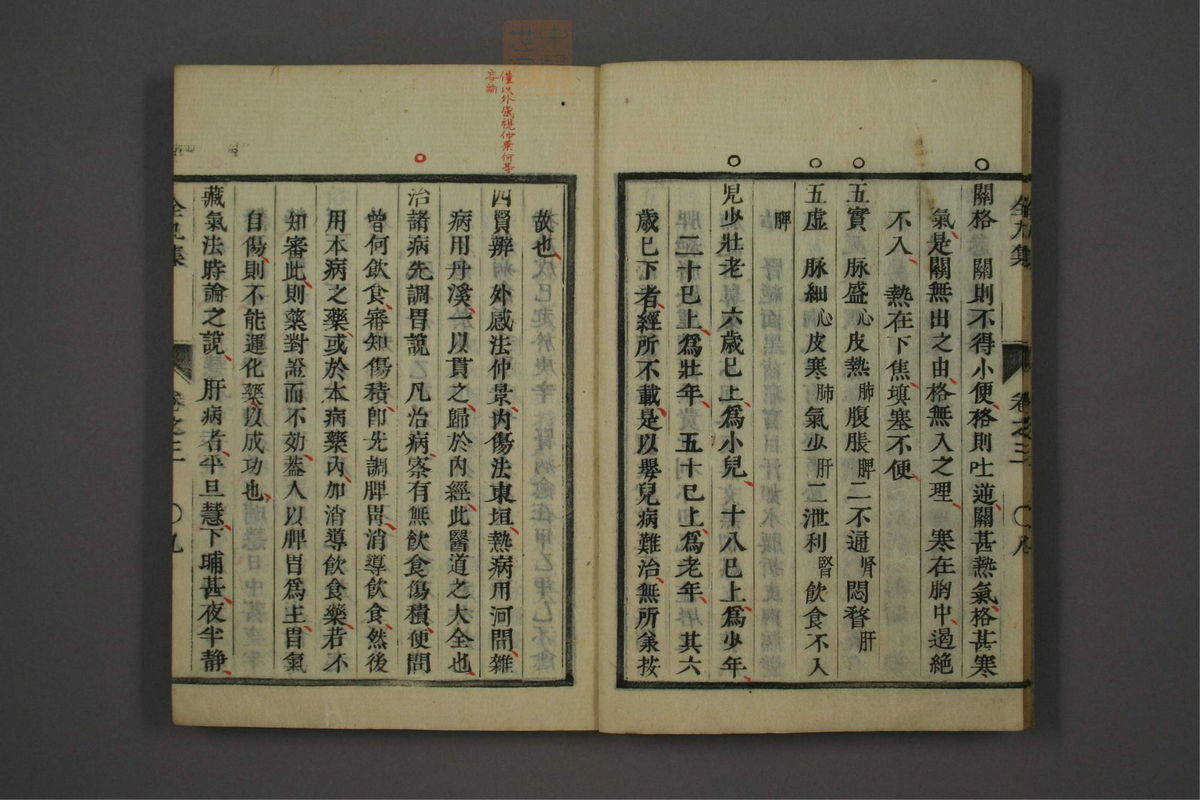 關格 關則不得小便格則吐逆關甚熱氣格甚寒
氣是關無出之由格無入之理 寒在胸中遏絶
不入 熱在下焦塡塞不便
五實 脉盛心皮熱肺腹脹脾二不通腎悶瞀肝
五虛 脉細心皮寒肺氣少肝二泄利腎飲食不入
脾
兒少壯老 六歳已上爲小兒 十八已上爲少年
二十已上爲壯年 五十已上爲老年 其六
歳已下者經所不載是以嬰兒病難治無所㒷按
全九集 卷之三 〇九
僅以外感視仲景何等
妄論
故也
四賢辨 外感法仲景內傷法東垣熱病用河間雜
病用丹溪一以貫之歸於內經此醫道之大全也
治諸病先調胃說 凡治病察有無飲食傷積便問
曾何飲食審知傷積卽先調脾胃消導飲食然後
用本病之藥或於本病藥內加消導飲食藥若不
知審此則藥對證而不効蓋人以脾胃爲主胃氣
自傷則不能運化藥以成功也
藏氣法時論之說 肝病者平旦慧下晡甚夜半靜
全九集 卷之三 〇九